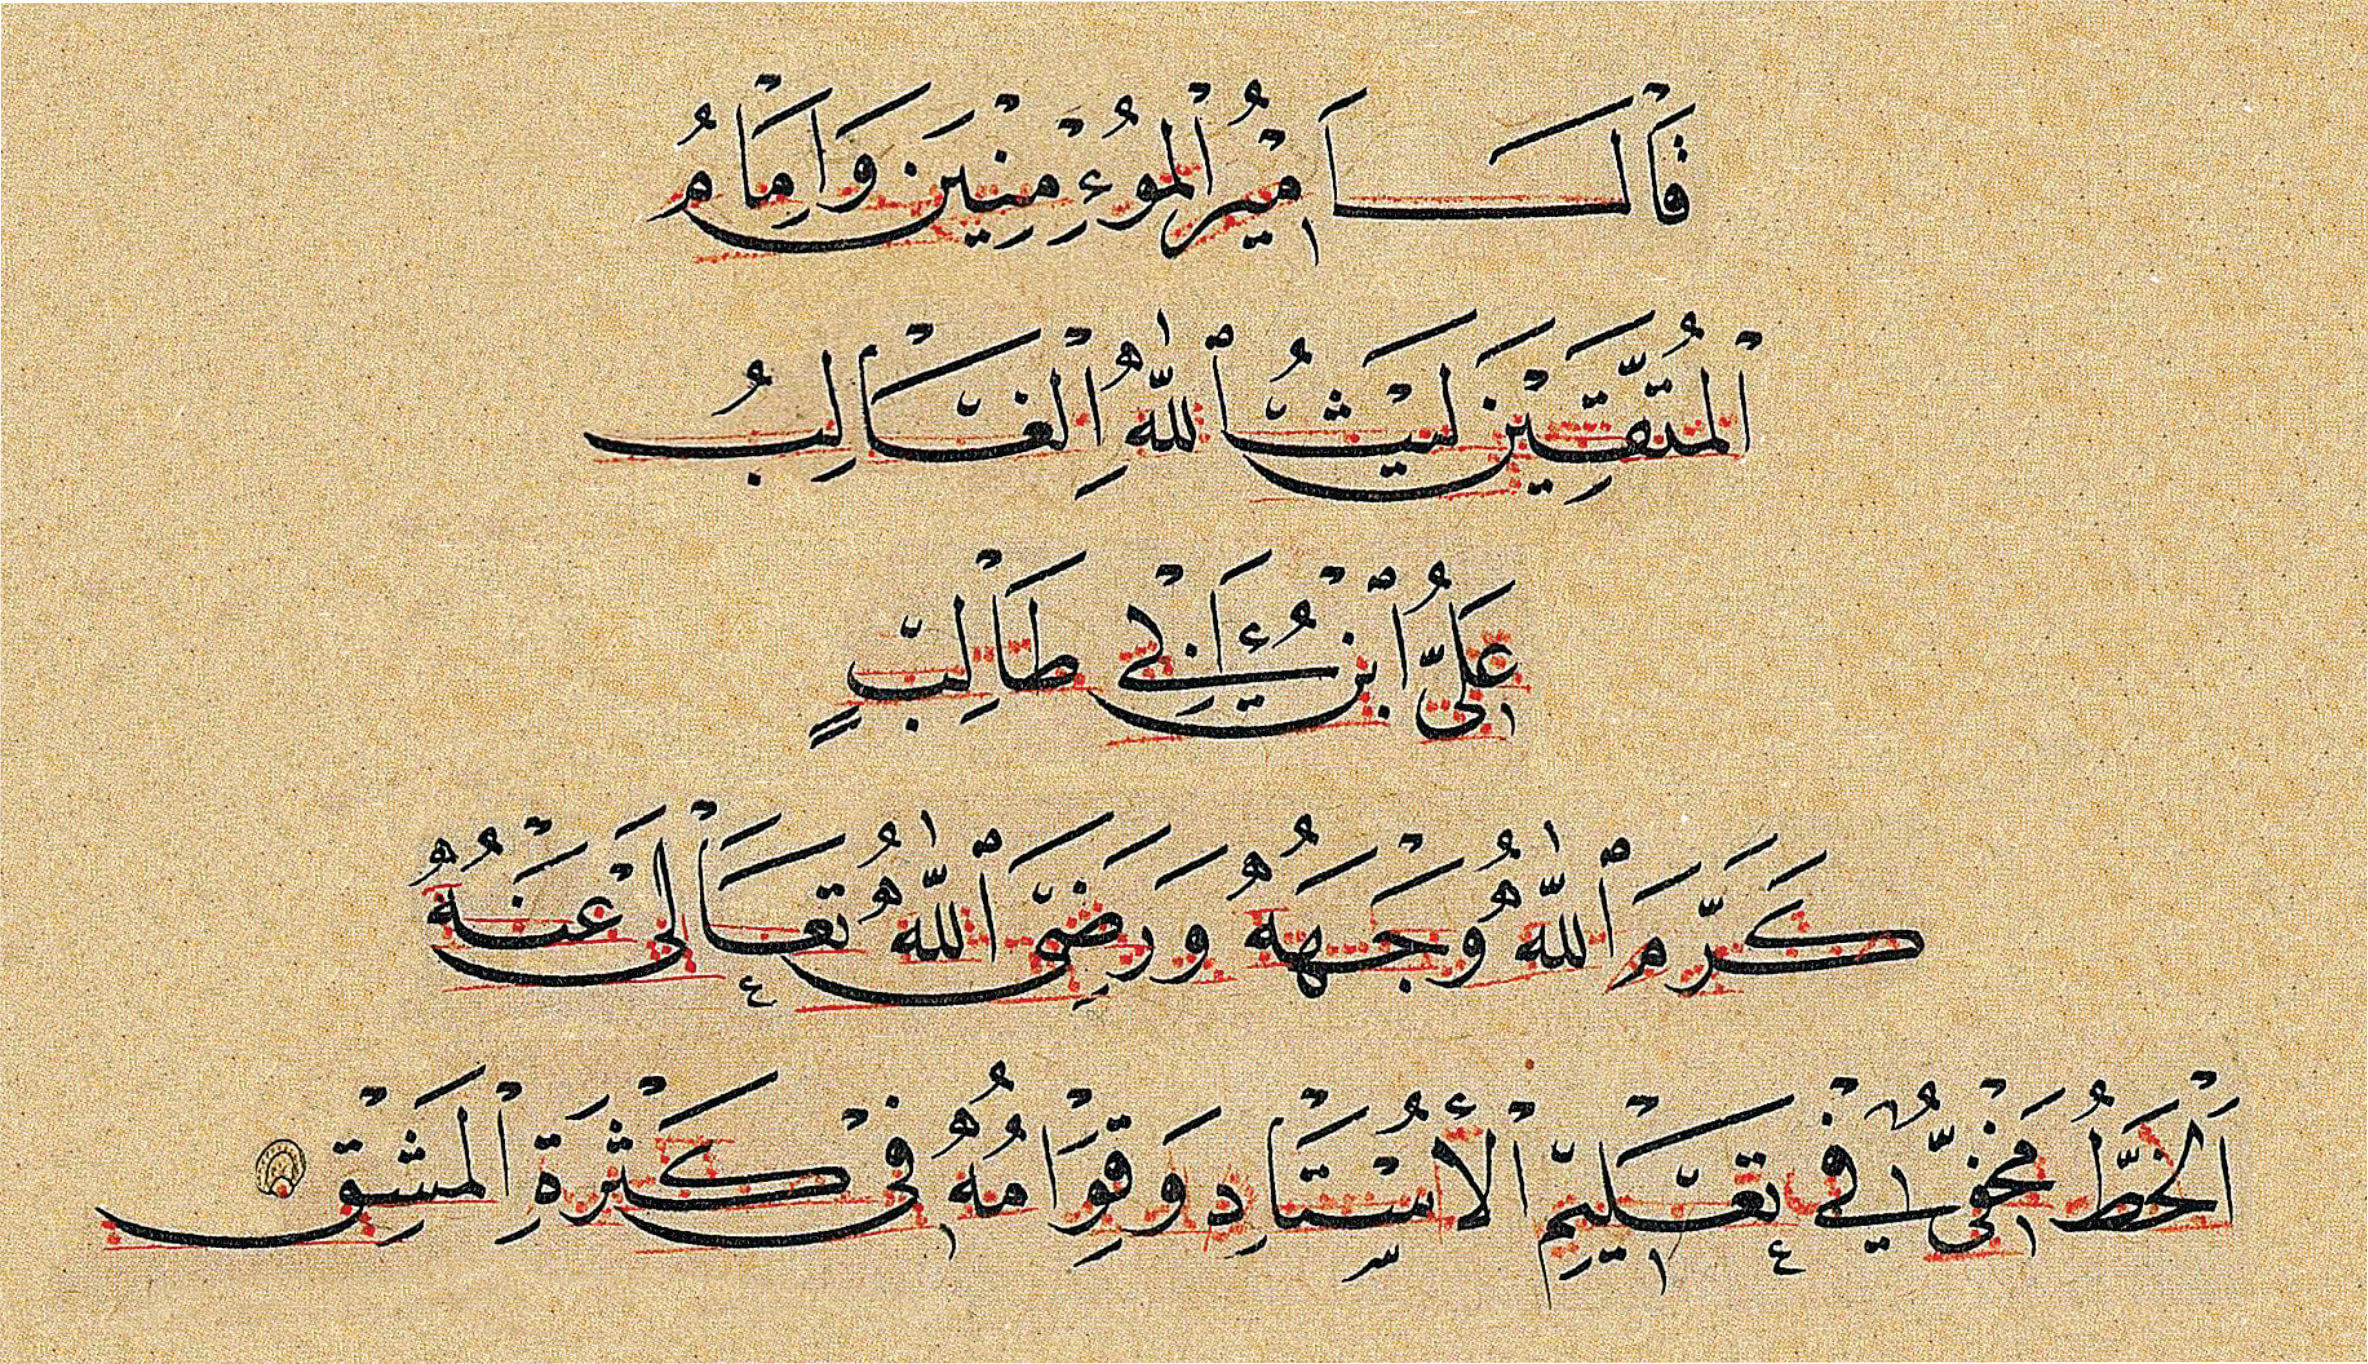 قَالَ اَمِيْرُ الْمُوءْمِنِيْنَ وَاِمَامُ
الْمُتَّقِيْنَ لَيْثُ اللّٰهِ الْغَالِبُ
عَلِيُّ ابْنُ اَبِيْ طَالِبٍ
كَرَّمَ اللّٰهُ وَجْهَهُ وَرَضِىَ اللّٰهُ تَعَالٰى عَنْهُ
اَلْخَطُّ مَخْفِيٌّ فِيْ تَعْلِيْمِ الْأُسْتَادِ وَقِوَامُهُ فِيْ كَثْرَةِ الْمَشْقِ